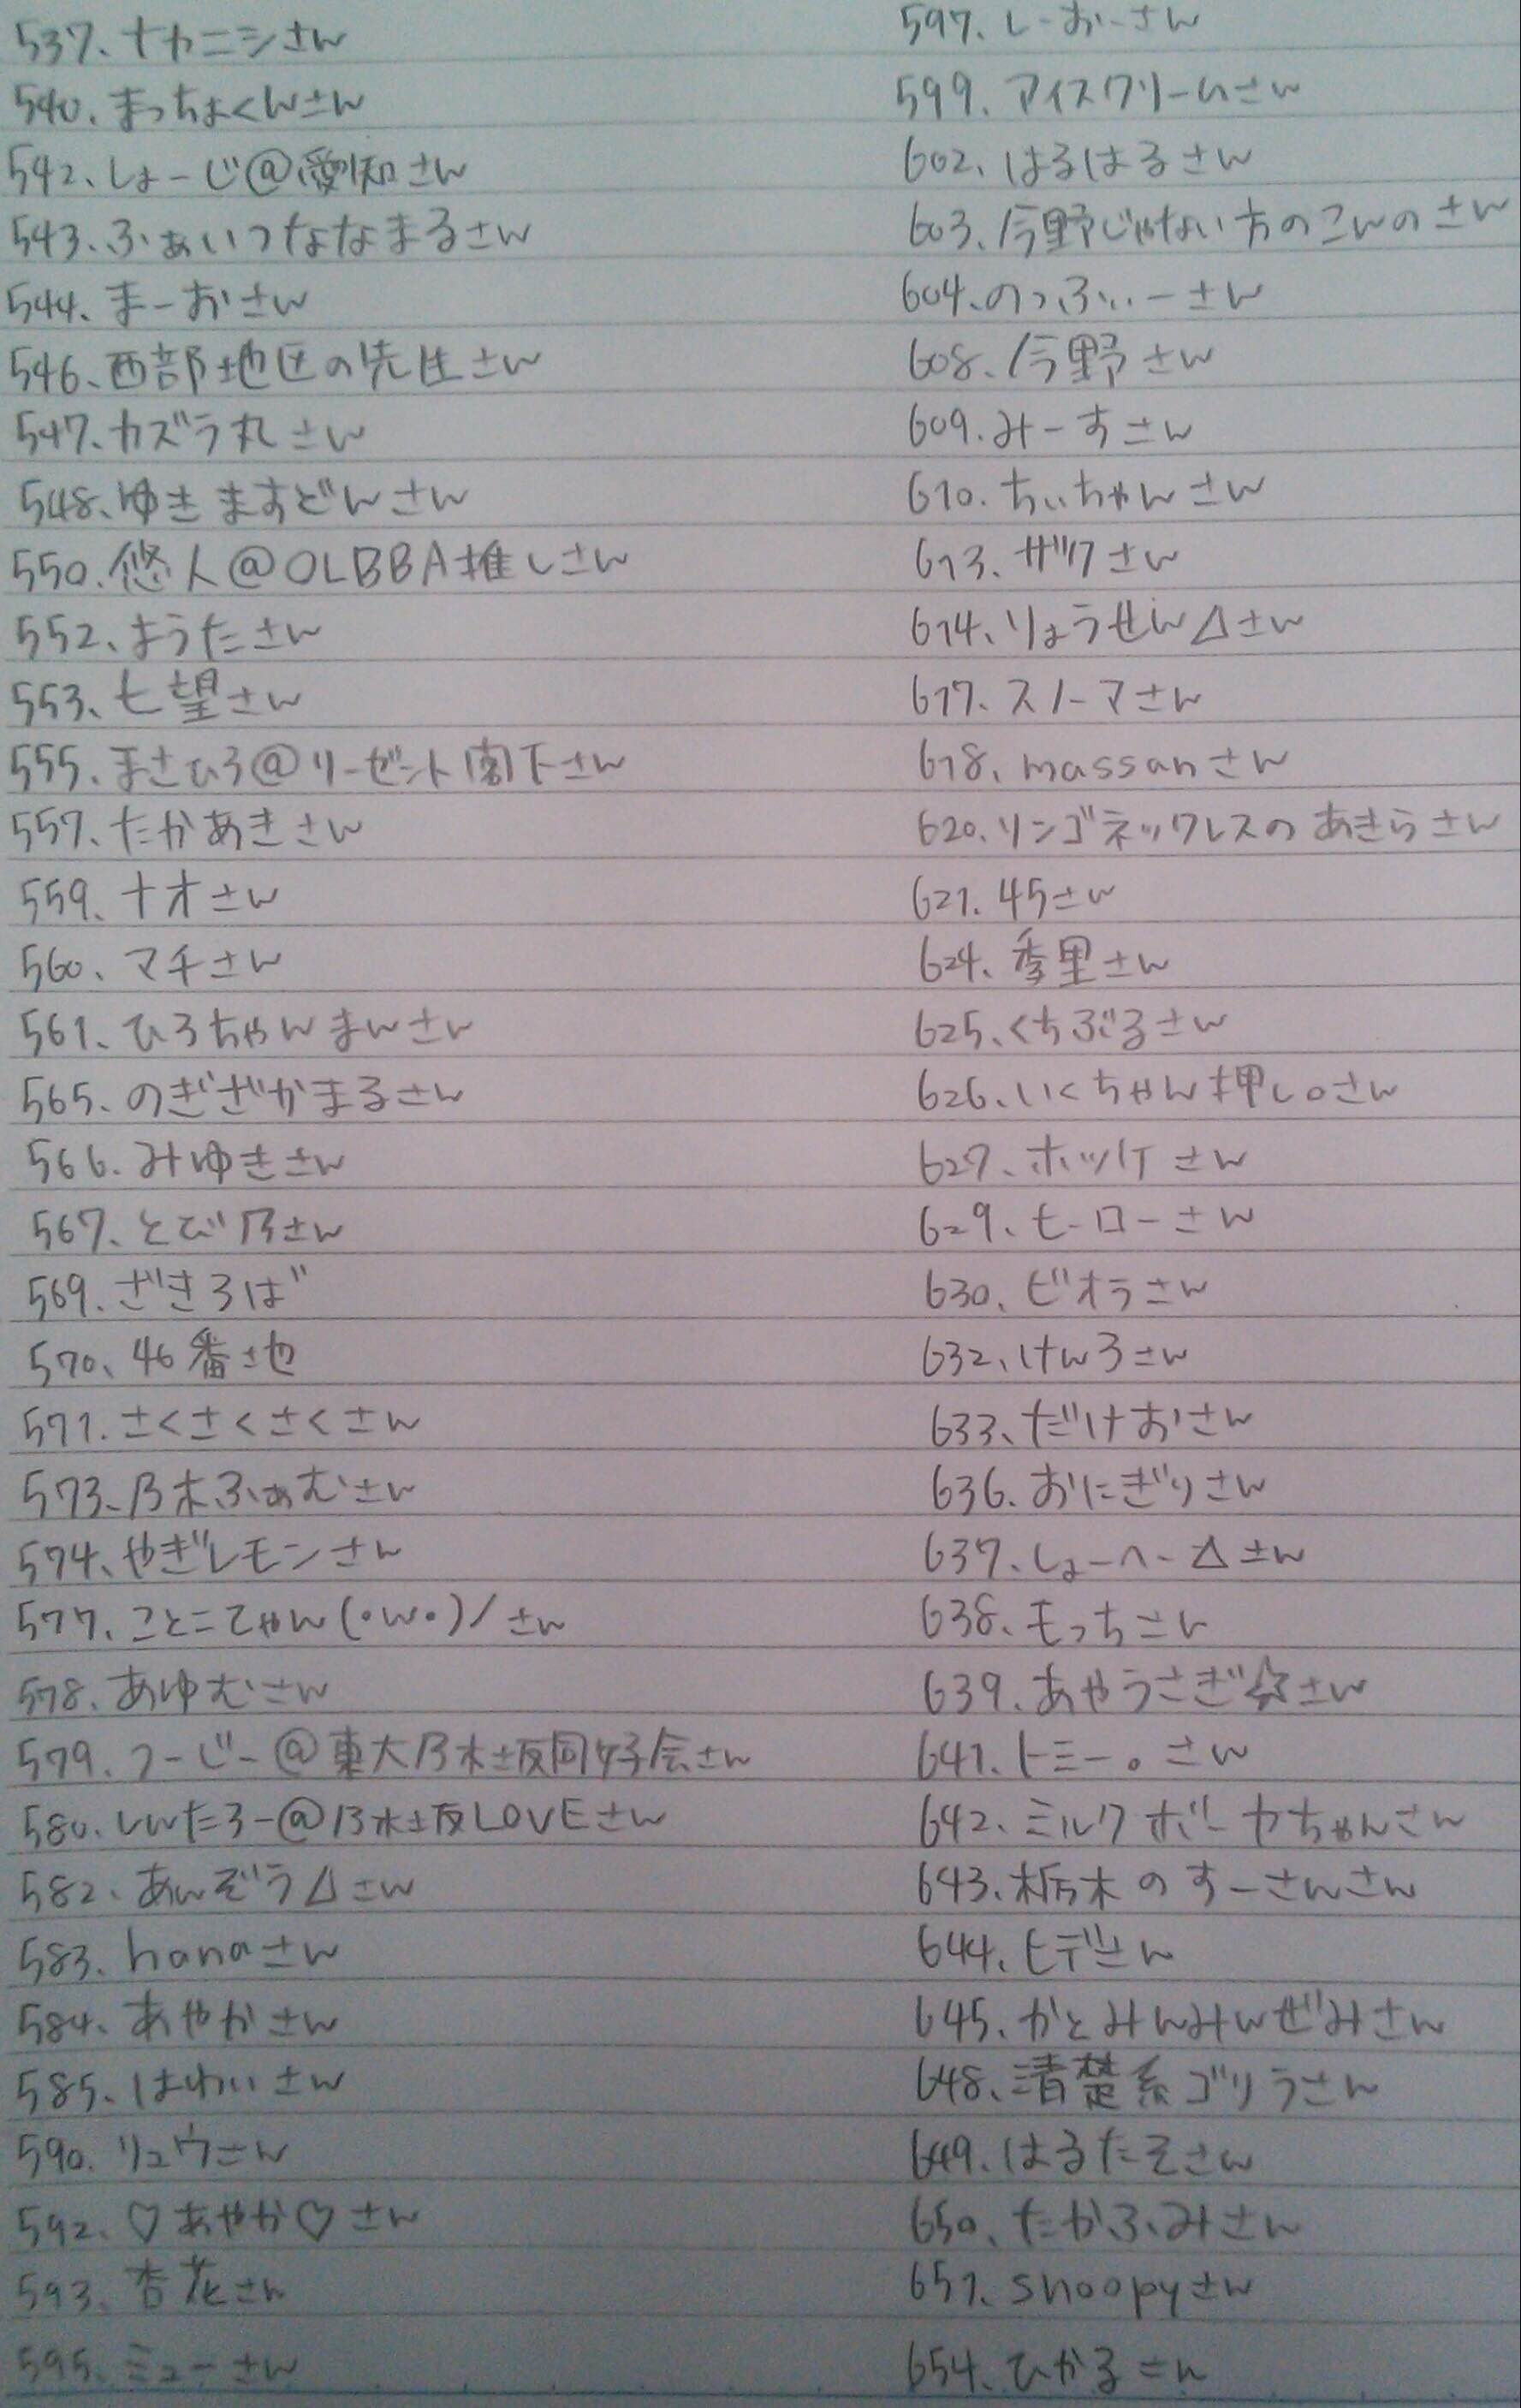 537、ナカニシさん
540、まっちょくんさん
542、しょーじ@愛知さん
543、ふぁいつななまるさん
544、まーおさん
546、西部地区の先生さん
547、カズラ丸さん
548、ゆきますどんさん
550、悠人@OLBBA推しさん
552、ようたさん
553、七望さん
555、まさひろ@リーゼント閣下さん
557、たかあきさん
559、ナオさん
560、マチさん
561、ひろちゃんまんさん
565、のぎざかまるさん
566、みゆきさん
567、とび乃さん
569、ざきろば
570、46番地
571、さくさくさくさん
573、乃木ふぁむさん
574、やぎレモンさん
577、ことこてゃん(・w・)/さん
578、あゆむさん
579、つーじー@東大乃木坂同好会さん
580、しんたろー@乃木坂LOVEさん
582、あんぞう△さん
583、hanaさん
584、あやかさん
585、はわいさん
590、リュウさん
592、♡あやか♡さん
593、杏花さん
595、ミューさん
597、しーおーさん
599、アイスクリームさん
602、はるはるさん
603、今野じゃない方のこんのさん
604、のっふぃーさん
608、今野さん
609、みーすさん
610、ちぃちゃんさん
613、ザックさん
614、りょうせい△さん
617、スノーマさん
618、massanさん
620、リンゴネックレスのあきらさん
621、45さん
624、季里さん
625、くちぶるさん
626、いくちゃん押し。さん
627、ホッケさん
629、ヒーローさん
630、ビオラさん
632、けんろさん
633、だけおさん
636、おにぎりさん
637、しょーへー△さん
638、もっちさん
639、あやうさぎ☆さん
641、トミー。さん
642、ミルクボーヤちゃんさん
643、栃木のすーさんさん
644、ヒデさん
645、かとみんみんぜみさん
648、清楚系ゴリラさん
649、はるたそさん
650、たかふみさん
651、snoopyさん
654、ひかるさん